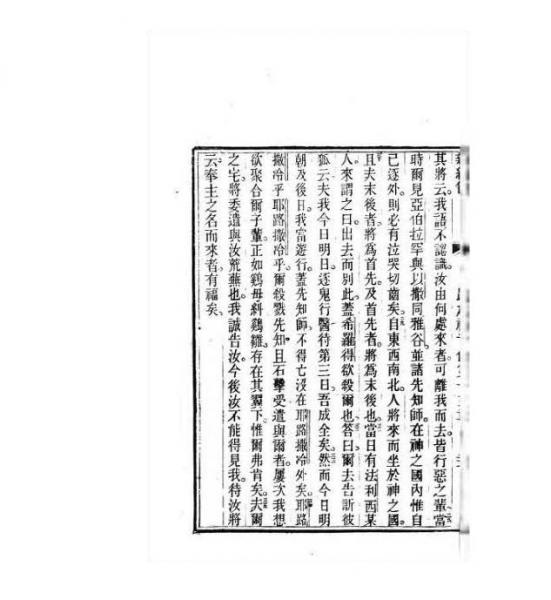 其將云我語不認識汝由何處來者可離我而去皆行惡之輩當
時爾見亞伯拉罕與以撒同雅谷並諸先知師在神之國內惟自
己逐外則必有泣哭切齒矣自東西南北人將來而坐於神之國
且夫末後者將為首先及首先者將為末後也當日有法利西某
人來謂之曰出去而別此蓋希羅得欲殺爾也答曰爾去告訴彼
狐云夫我今日明日逐鬼行醫待第三日吾成全矣然而今日明
朝及後日我當遊行蓋先知師不得亡沒在耶路撒冷外矣耶路
撒冷乎耶路撒冷乎爾殺戮先知且石擊受遣與爾者屢次我想
欲聚合爾子輩正如鷄母糾鷄雛存在其翼下惟爾弗肯矣夫爾
之宅將委遺與汝荒蕪也我誠告汝今後汝不能得見我待汝將
云奉主之名而來者有福矣